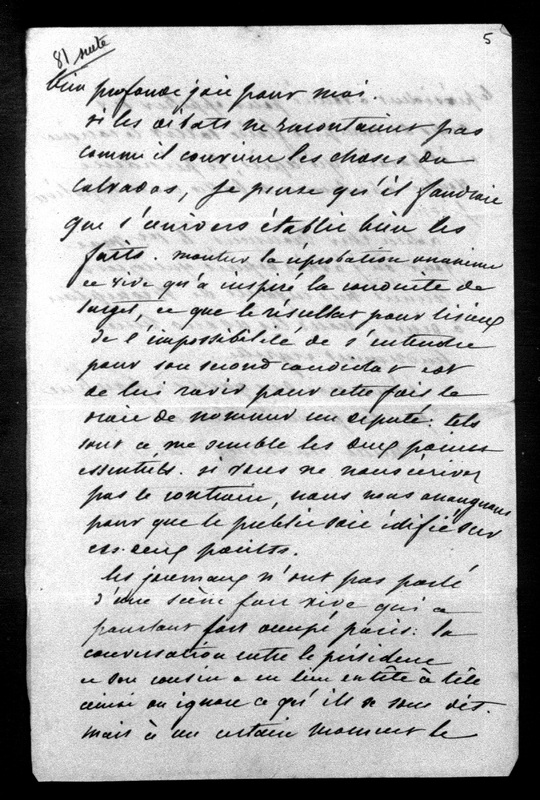 81 suite
5
bien profonde joie pour moi.
si les débats ne racontaient pas
comme il convient les choses du
calvados, je pense qu'il faudrait
que l'univers établit bien les
faits. montrer la réprobation unanime
et vive qu'a inspiré la conduite de
target, et que le résultat pour lisieux
de l'impossibilité de s'entendre
pour son second candidat est
de lui ravir pour cette fois le
droit de nommer un député. tels
sont ce me semble les deux points
essentiels. si vous ne nous écrivez
pas le contraire, nous nous arrangeons
pour que le public soit édifié sur
ces deux points.
les journaux n'ont pas parlé
d'une scène fort vive qui a
pourtant fort occupé paris: la
conversation entre le président
et son cousin a eu lieu en tête à tête
ainsi on ignore ce qu'ils se sont dit.
mais à un certain moment le